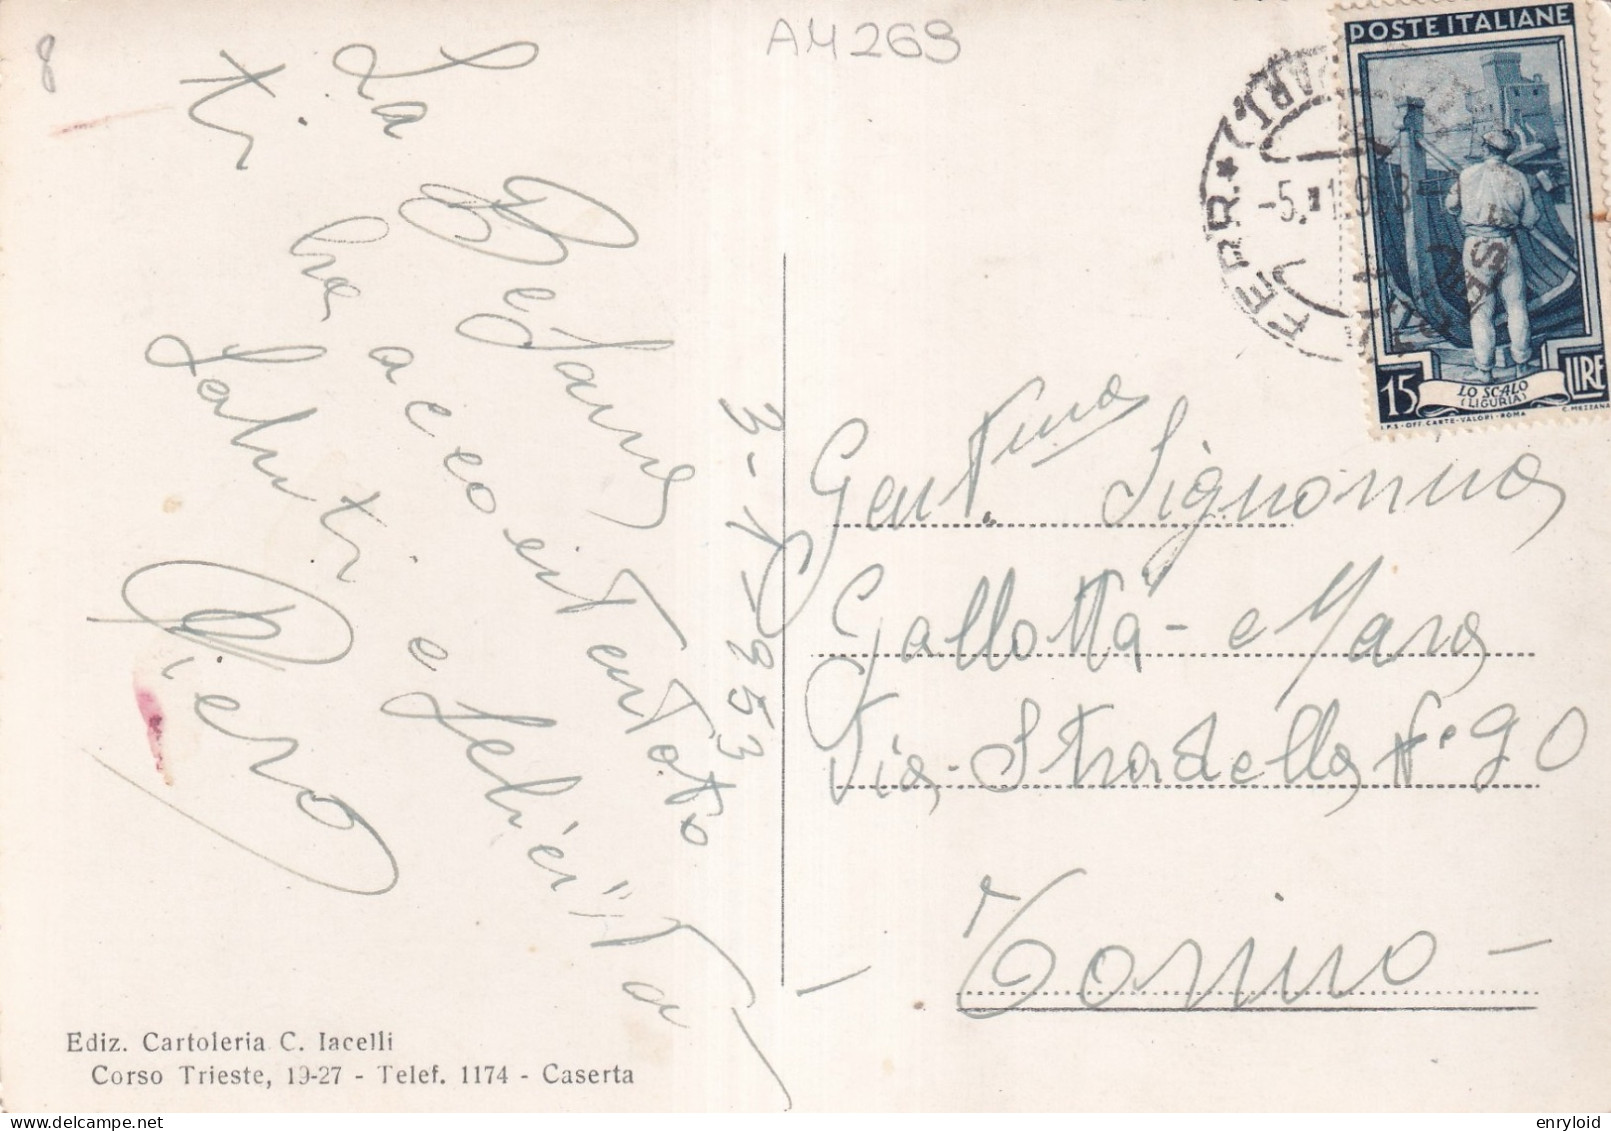 8
AM 269
POSTE ITALIANE
FERR. * (PART.)
-5.1.953
15 LIRE
LO SCALO
(LIGURIA)
I.P.S.-OFF. CARTE-VALORI-ROMA C. MEZZANA
La Befana
ti ha accontentato
Saluti e felicità
Piero
3-1-1953
Gent.ma Signorina
Gallotta - e Mara
Via - Stradella N° 90
Torino -
Ediz. Cartoleria C. Iacelli
Corso Trieste, 19-27 - Telef. 1174 - Caserta
delcampe.net
enryloid